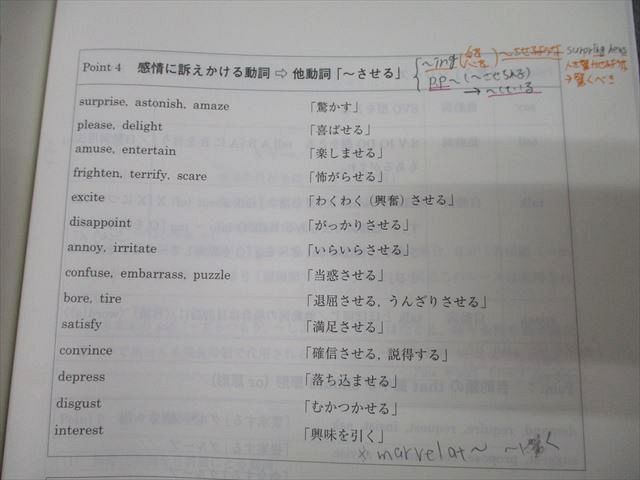 Point 4 感情に訴えかける動詞 ⇨ 他動詞「～させる」
～ing ～させるような
p.p ～(～させられる)
→ ～している
surprising news
人を驚かせるような
→ 驚くべき
surprise, astonish, amaze 「驚かす」
please, delight 「喜ばせる」
amuse, entertain 「楽しませる」
frighten, terrify, scare 「怖がらせる」
excite 「わくわく（興奮）させる」
disappoint 「がっかりさせる」
annoy, irritate 「いらいらさせる」
confuse, embarrass, puzzle 「当惑させる」
bore, tire 「退屈させる, うんざりさせる」
satisfy 「満足させる」
convince 「確信させる, 説得する」
depress 「落ち込ませる」
disgust 「むかつかせる」
interest 「興味を引く」
※ marvel at ～ ～に驚く